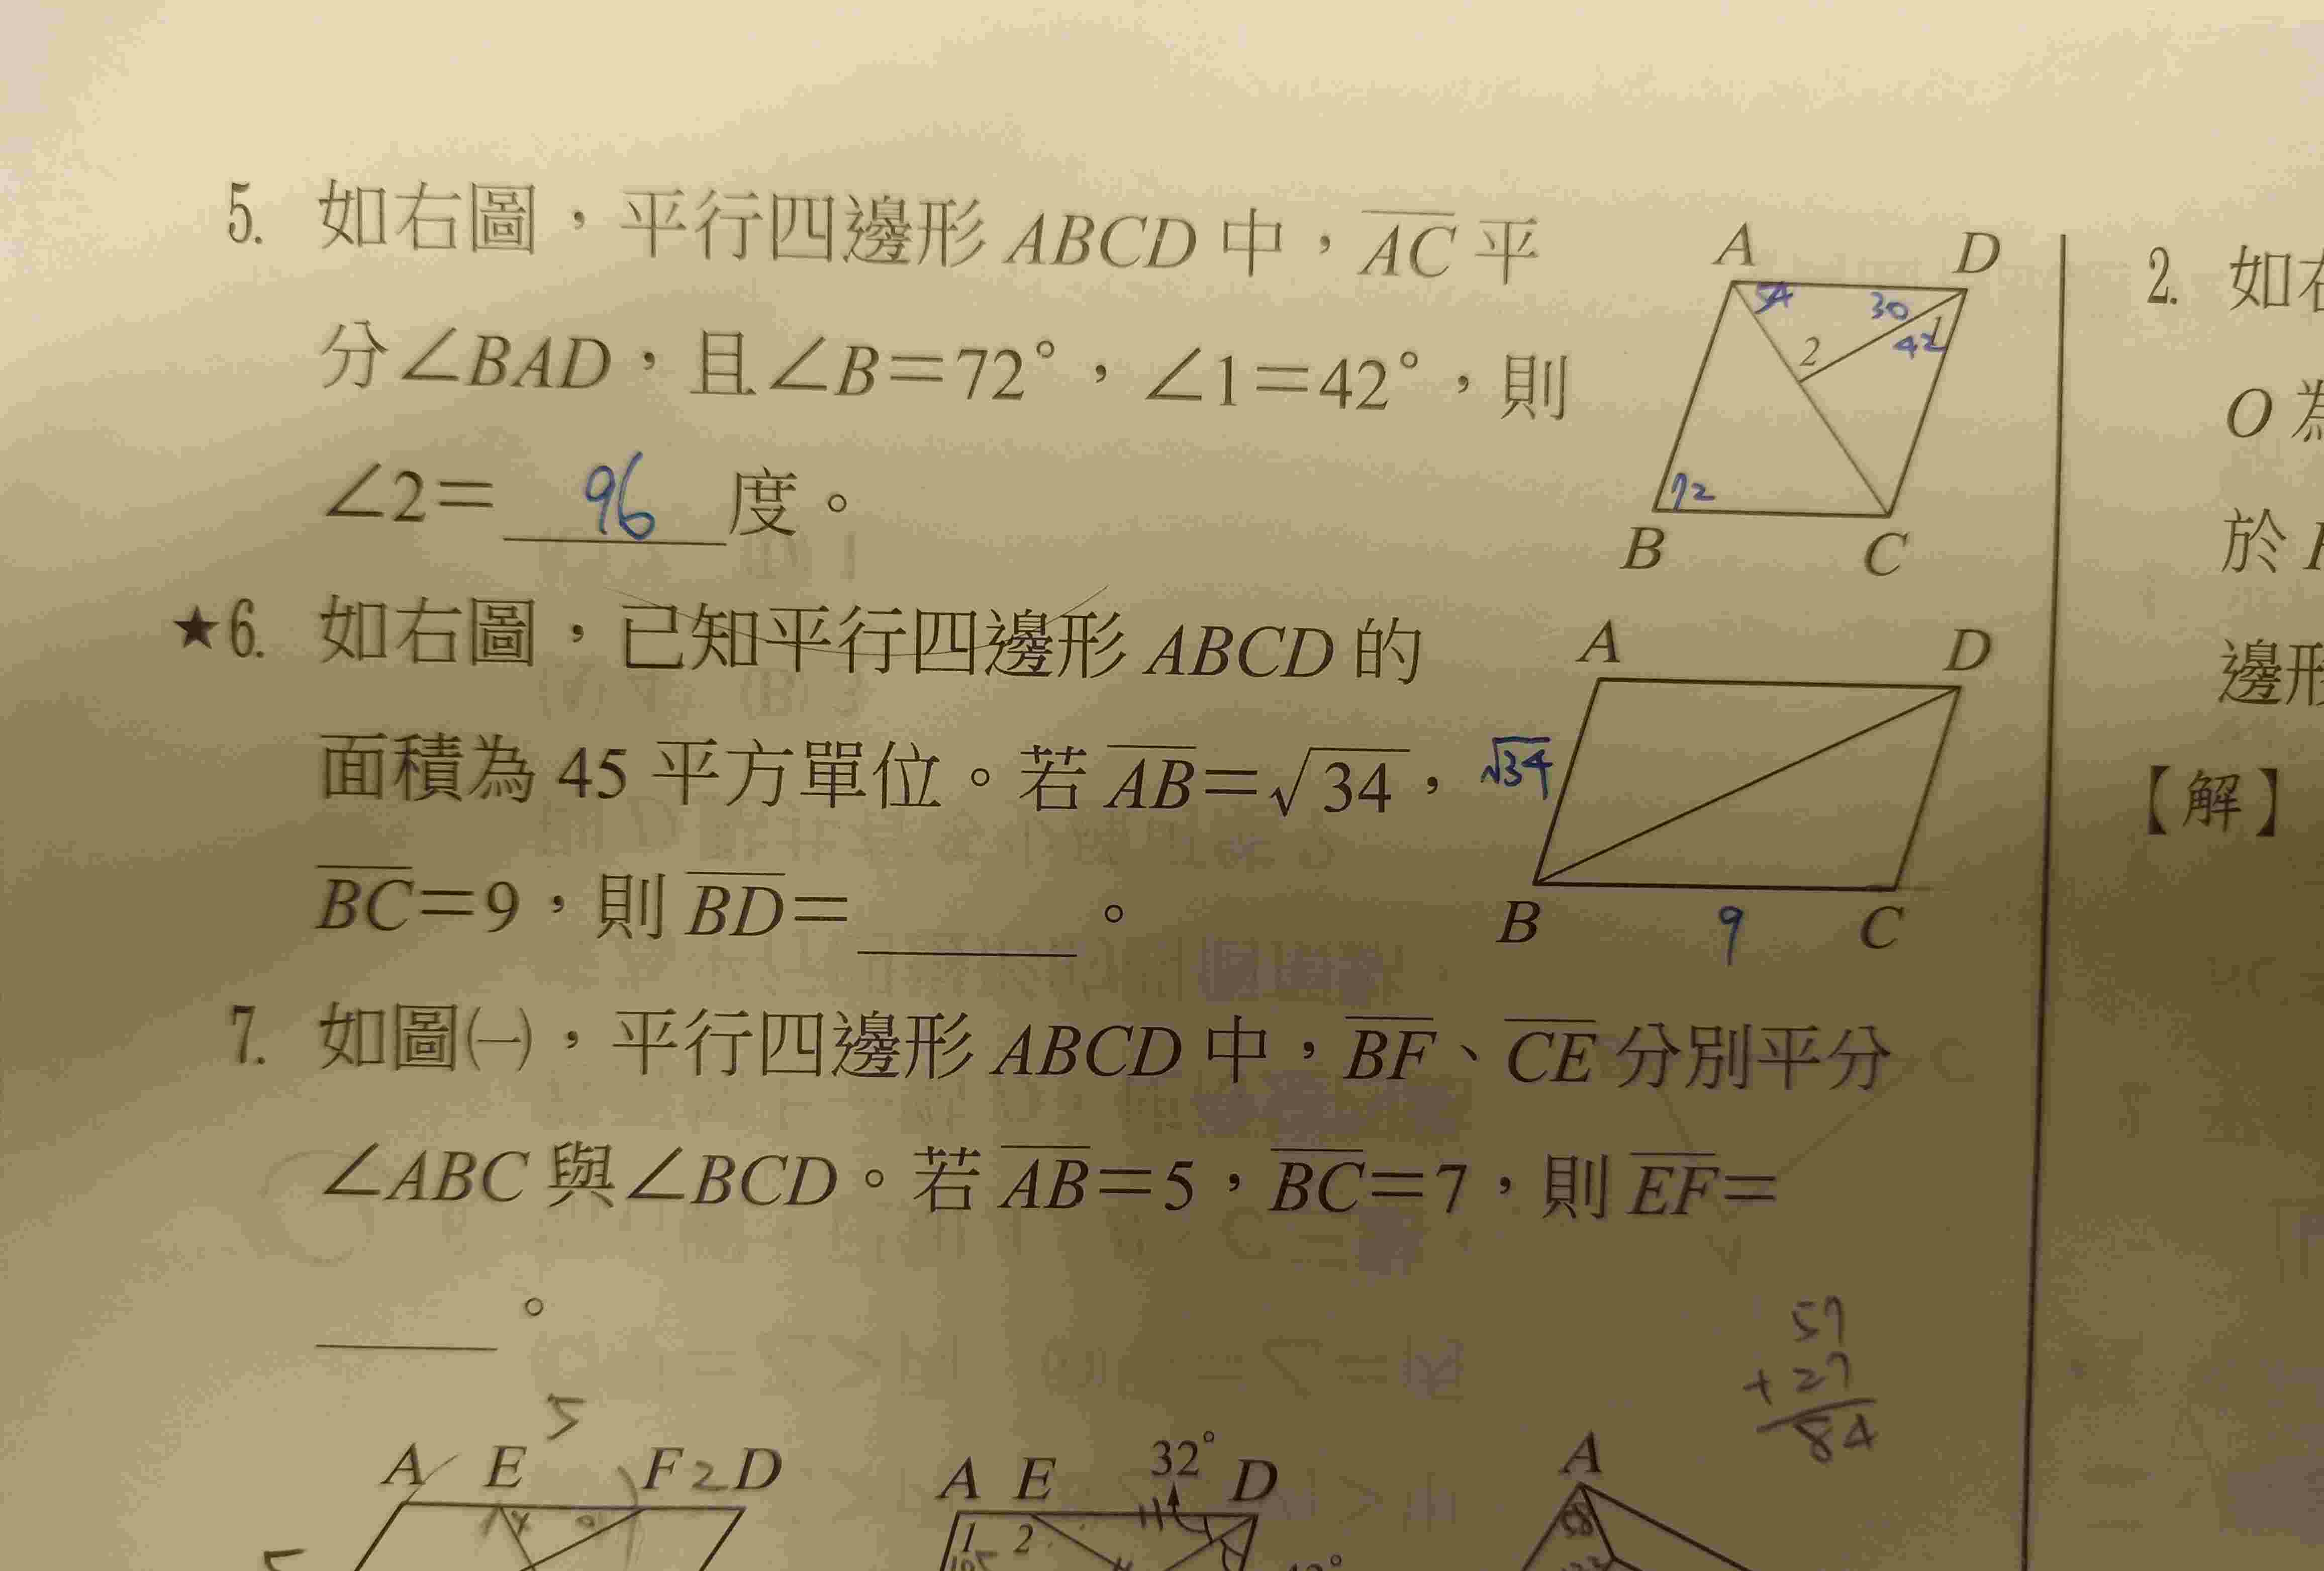 5. 如右圖，平行四邊形 ABCD 中，AC 平
分∠BAD，且∠B=72°，∠1=42°，則
∠2= 96 度。
A D
54 30 1
2 42
72
B C
★6. 如右圖，已知平行四邊形 ABCD 的
面積為 45 平方單位。若 AB=√34，
BC=9，則 BD=______。
A D
√34
B 9 C
7. 如圖㈠，平行四邊形 ABCD 中，BF、CE 分別平分
∠ABC 與∠BCD。若 AB=5，BC=7，則 EF=
______。
57
+27
84
5
A E F 2 D
5
A E 32° D
1 2
A
58
2. 如右
O 為
於
邊形
【解】